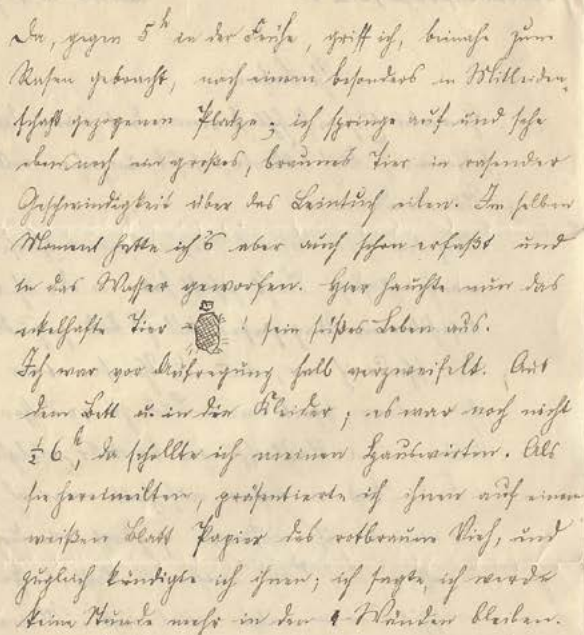 Da, gegen 5 h in der Frühe, griff ich, beinahe zum
Rasen gebracht, nach einem besonders in Mitleiden-
schaft gezogenen Platze; ich springe auf und sehe
eben noch ein großes, braunes Tier in rasender
Geschwindigkeit über das Leintuch eilen. Im selben
Moment hatte ich's aber auch schon erfaßt und
in das Wasser geworfen. Hier hauchte nun das
ekelhafte Tier ! sein süßes Leben aus.
Ich war vor Aufregung halb verzweifelt. Aus
dem Bett u. in die Kleider; es war noch nicht
½ 6 h, da schellte ich meinen Hauswirten. Als
sie hereineilten, präsentierte ich ihnen auf einem
weißen Blatt Papier das rotbraune Vieh, und
zugleich kündigte ich ihnen; ich sagte, ich werde
keine Stunde mehr in den 4 Wänden bleiben.